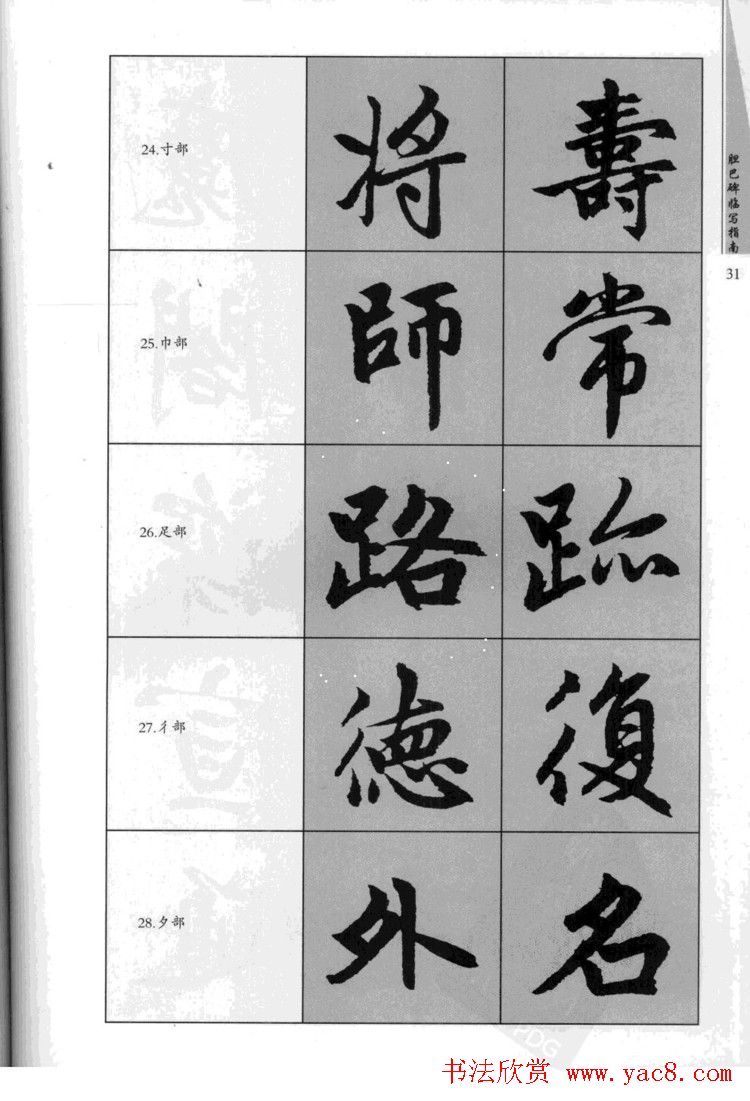 胆巴碑临写指南
31
24.寸部 将 壽
25.巾部 師 常
26.足部 路
27.彳部 徳 復
28.夕部 外 名
PDG
书法欣赏 www.yac8.com